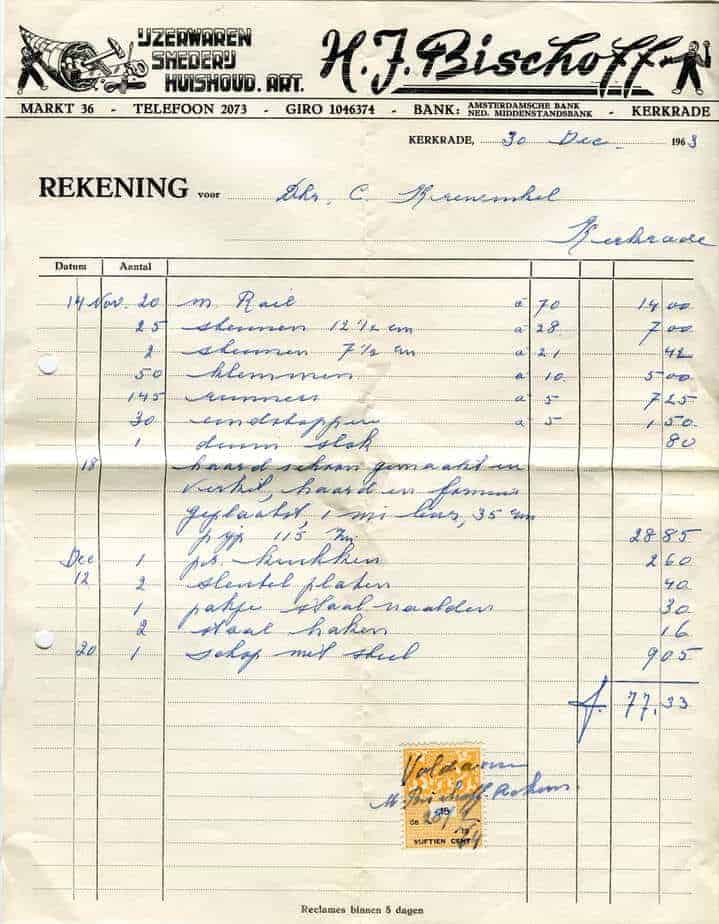 IJZERWAREN
SMEDERIJ
HUISHOUD. ART.
H. J. Bischoff
MARKT 36 - TELEFOON 2073 - GIRO 1046374 - BANK: AMSTERDAMSCHE BANK NED. MIDDENSTANDSBANK - KERKRADE
KERKRADE, 30 Dec 1963
REKENING voor Dhr. C. Krewinkel
Kerkrade
Datum Aantal
14 Nov. 20 m. Rail à 70 14 00
25 steunen 12 1/2 cm à 28 7 00
2 steunen 7 1/2 cm à 21 42
50 klemmen à 10 5 00
145 runners à 5 7 25
30 eindstoppen à 5 1 50
1 duim stok 80
18 haard schoon gemaakt en
verkit, haard en fornuis
geplaatst, 35 cm
pijp 115 28 85
Dec 1 2 60
12 2 sleutel platen 40
1 pakje staal naalden 30
2 staal haken 16
20 1 schop met steel 9 05
f. 77,33
Voldaan
M. Bischoff-
15
VIJFTIEN CENT
Reclames binnen 8 dagen